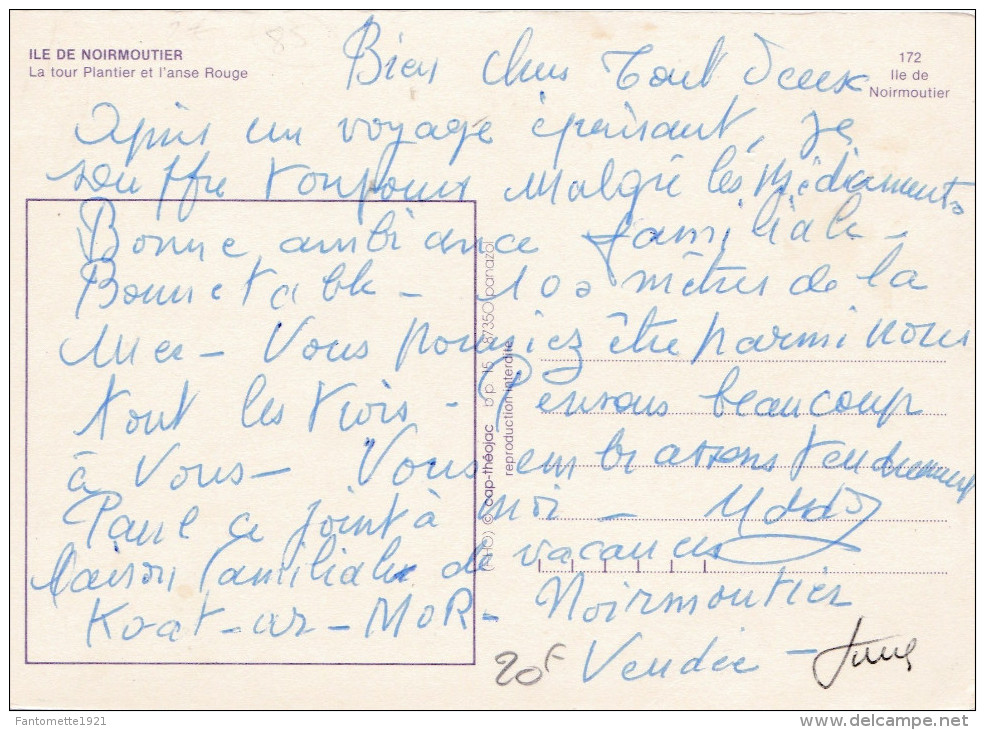 ILE DE NOIRMOUTIER
La tour Plantier et l'anse Rouge
172
Ile de
Noirmoutier
Bien chers tout deux
Après un voyage épuisant, je
souffre toujours malgré les médicaments
Bonne ambiance familiale -
Bonne table - 100 mètres de la
mer - Vous pourriez être parmi nous
tout les trois - Pensons beaucoup
à vous - Vous embrassons tendrement
Paul ce joint à moi -
Maison familiale de vacances
Ko-at-ar-MOR - Noirmoutier
Vendée -
20F
cap-théojac b.p. 15 87350 panazol
reproduction interdite
Fantomette1921
http://www.delcampe.net